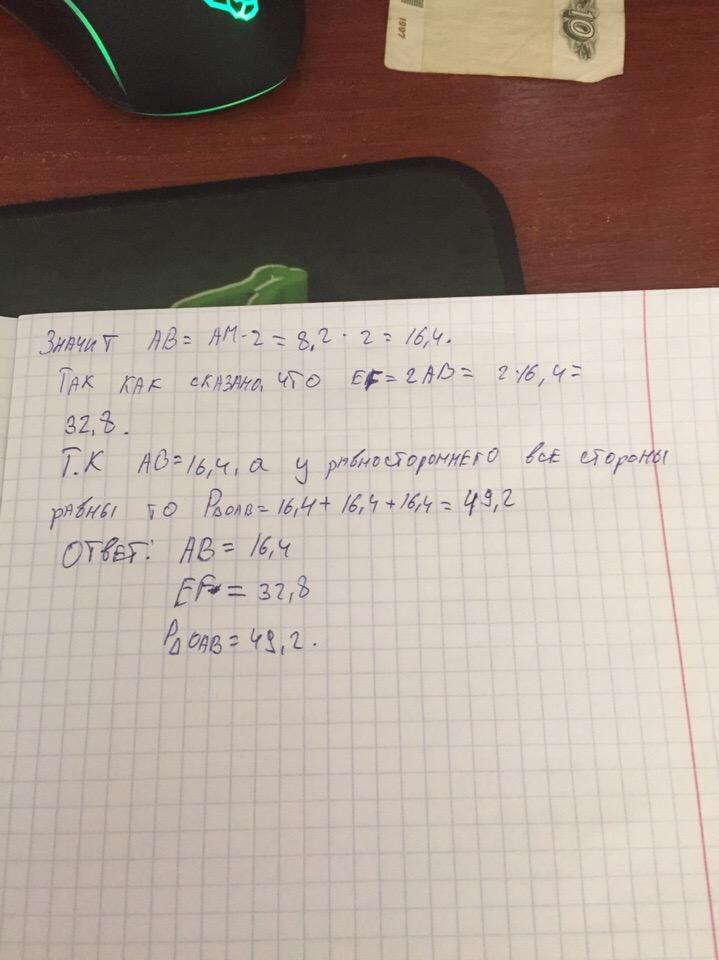 1997
10
Значит AB = AM · 2 = 8,2 · 2 = 16,4.
Так как сказано, что EF = 2AB = 2·16,4 =
32,8.
Т.К AB = 16,4, а у равностороннего все стороны
равны то P△OAB = 16,4 + 16,4 + 16,4 = 49,2
Ответ: AB = 16,4
EF = 32,8
P△OAB = 49,2.